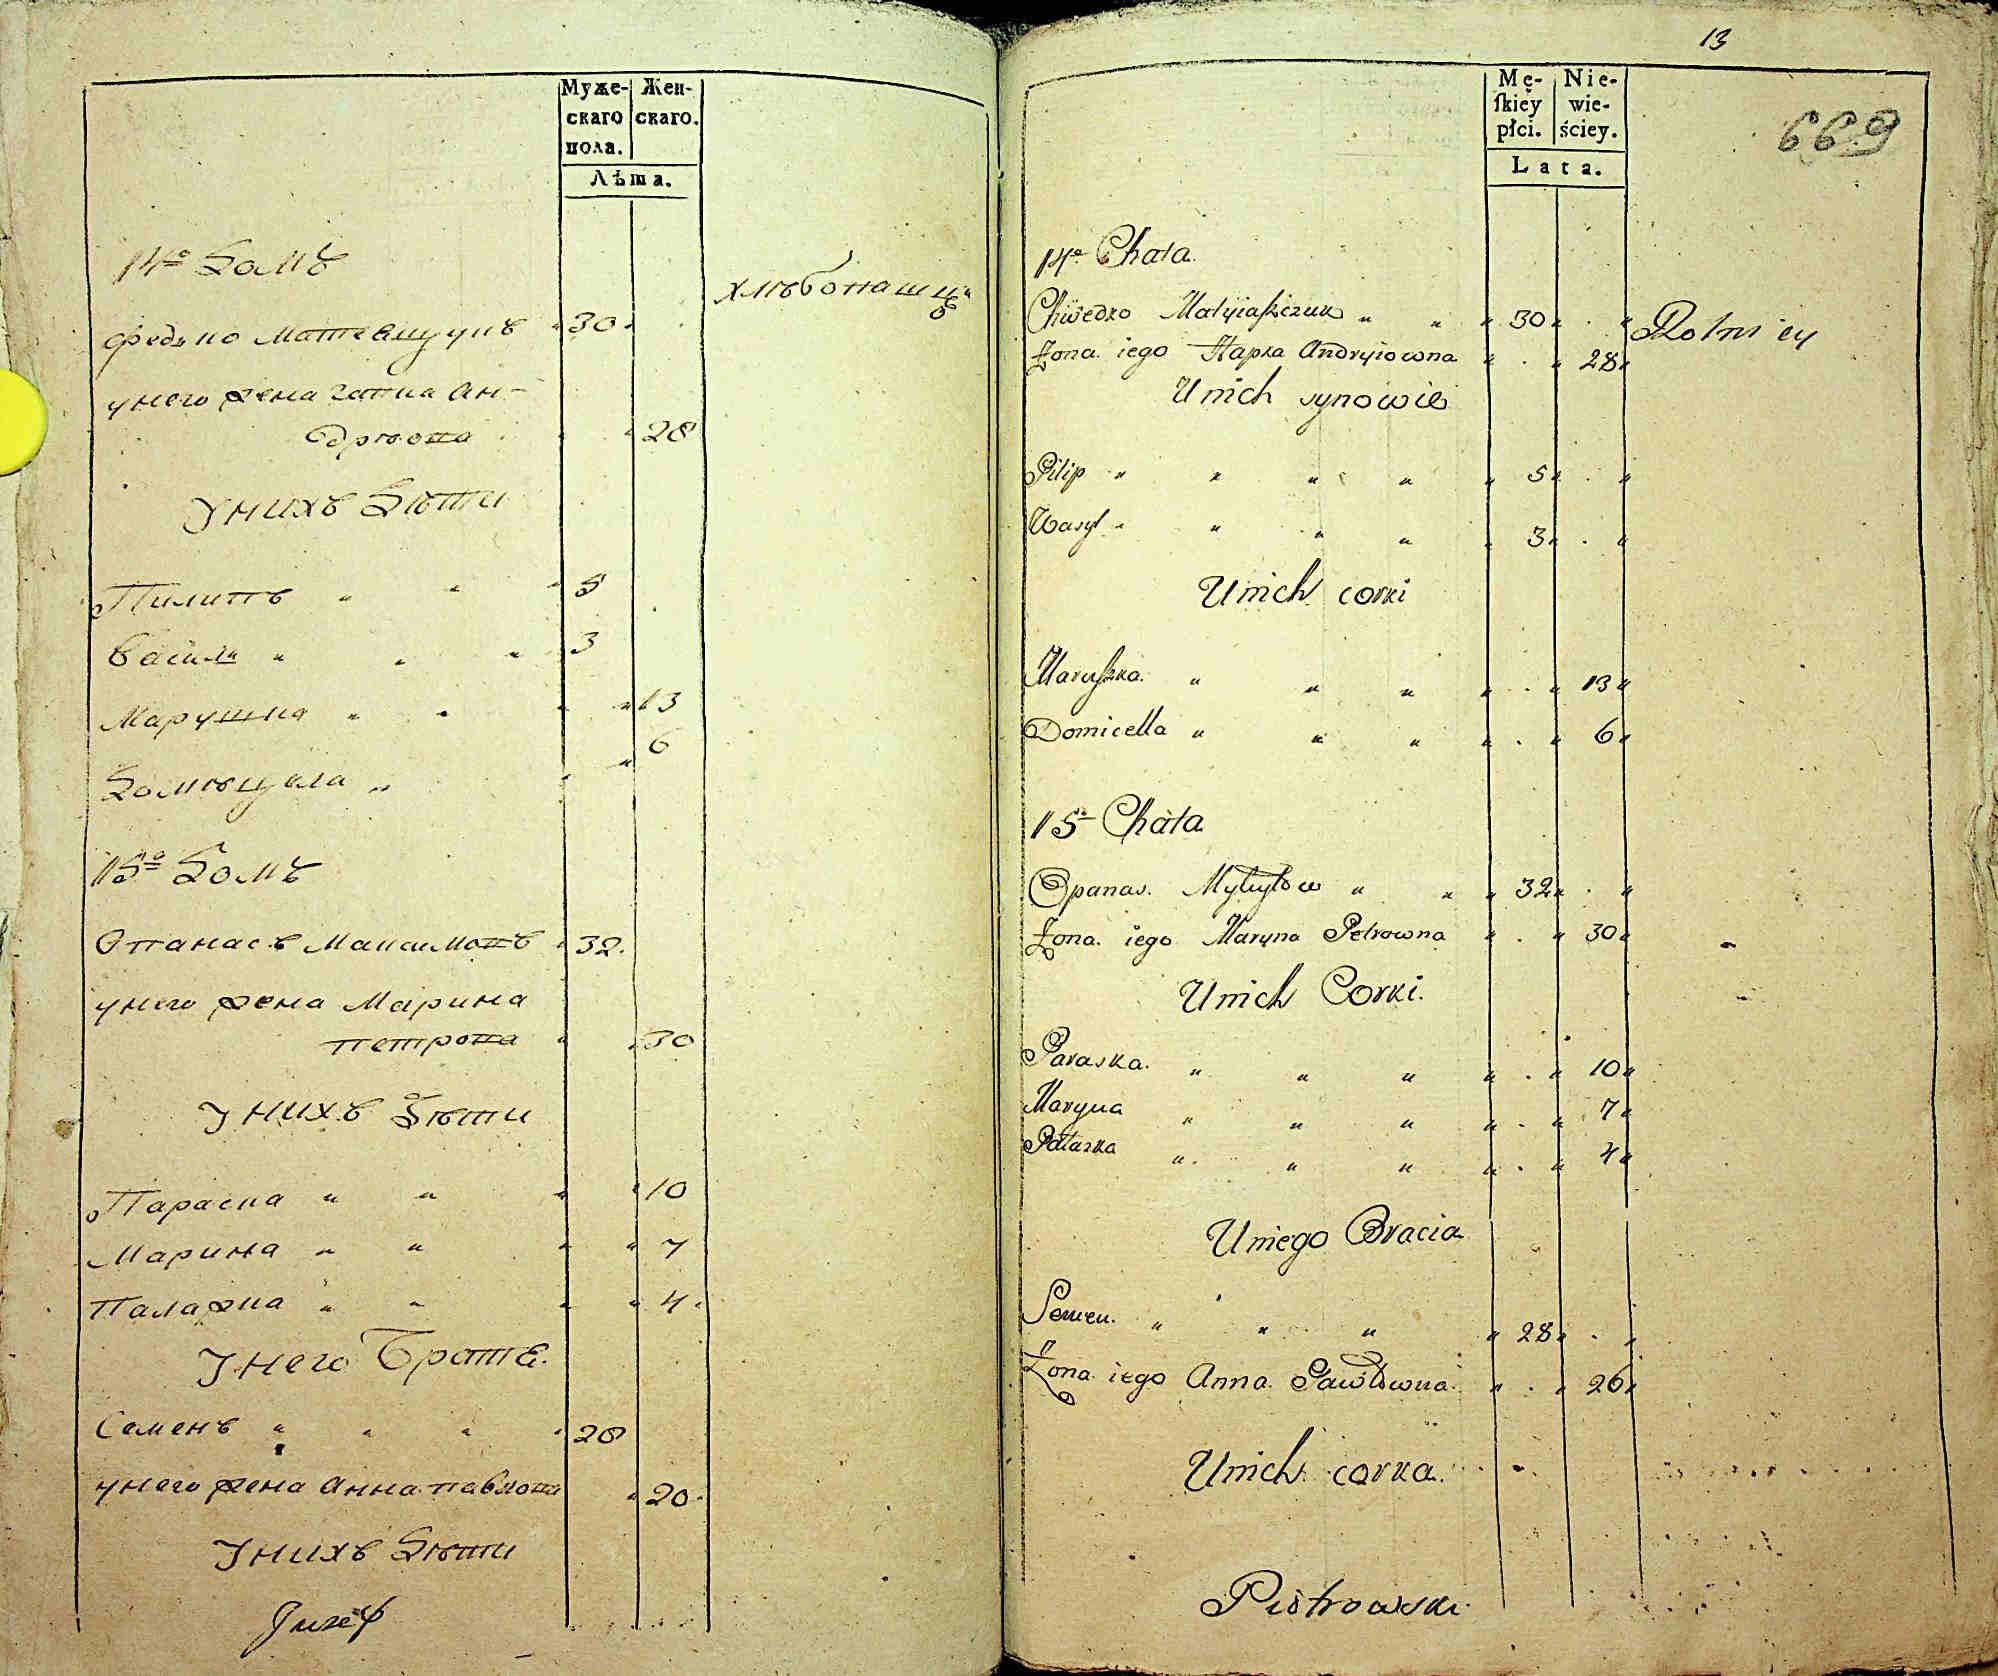 Муже-
скаго
пола.
Жен-
скаго.
Лѣта.
14º Домъ
хлѣбопашцъ
Федко Матеящукъ 30
унего жена Гапка Ан-
дрюова 28
Унихъ Дѣти
Пилипъ " " " 5
Васили " " " 3
Марушка " " " 13
Домѣцела " " 6
15º Домъ
Опанасъ Максимовъ 32
унего жена Марина
петрова 30
Унихъ Дѣти
Параска " " " 10
Марина " " " " 7
Паларка " " " " 4
Унего Братъ
Семенъ " " " " 28
унего жена Анна павлова 20
Унихъ Дѣти
Juzef
13
669
Mę-
ſkiey
płci.
Nie-
wie-
ściey.
Lata.
14º Chata
Chwedko " " " 30 " . " Rolnicy
Żona iego Hapka Andryiowna " . " 28 "
Unich synowie
Pilip " " " " " 5 " . "
Wasyl " " " " " 3 " . "
Unich corki
Maruszka " " " " . " 13 "
Domicella " " " " . " 6 "
15º Chata
Opanas " " " 32 " . "
Żona iego Maryna Petrowna " . " 30 "
Unich Corki.
Paraska. " " " " . " 10 "
Maryna " " " " . " 7 "
Palazka " " " " . " 4 "
Uniego Bracia
Semen. " " " " 28 " . "
Żona iego Anna Pawłowna " . " 26 "
Unich corka.
Piotrowski